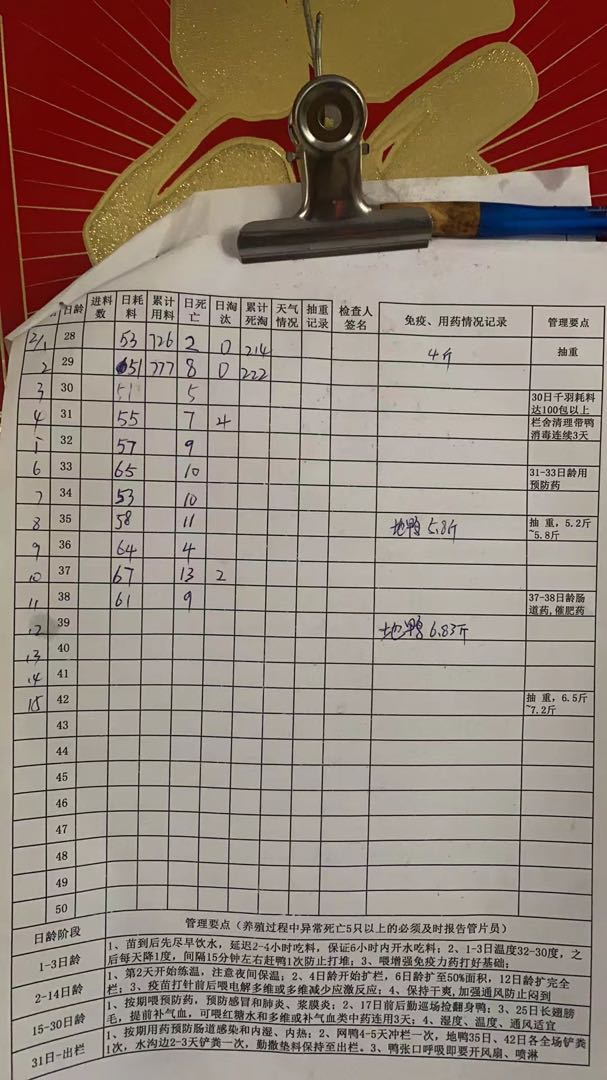 日龄 进料数 日耗料 累计用料 日死亡 日淘汰 累计死淘 天气情况 抽重记录 检查人签名 免疫、用药情况记录 管理要点
2/1 28 53 726 2 0 214 4斤 抽重
2 29 51 777 8 0 222
3 30 51 5 30日千羽耗料达100包以上
4 31 55 7 4 栏舍清理带鸭消毒连续3天
5 32 57 9
6 33 65 10 31-33日龄用预防药
7 34 53 10
8 35 58 11 地鸭 5.8斤 抽 重，5.2斤~5.8斤
9 36 64 4
10 37 67 13 2
11 38 61 9 37-38日龄肠道药,催肥药
12 39 地鸭 6.83斤
13 40
14 41
15 42 抽 重，6.5斤~7.2斤
43
44
45
46
47
48
49
50
日龄阶段 管理要点（养殖过程中异常死亡5只以上的必须及时报告管片员）
1-3日龄 1、苗到后先尽早饮水，延迟2-4小时吃料，保证6小时内开水吃料；2、1-3日温度32-30度，之
后每天降1度，间隔15分钟左右赶鸭1次防止打堆；3、喂增强免疫力药打好基础；
2-14日龄 1、第2天开始练温，注意夜间保温；2、4日龄开始扩栏，6日龄扩至50%面积，12日龄扩完全
栏；3、疫苗打针前后喂电解多维或多维减少应激反应；4、保持干爽,加强通风防止闷到
15-30日龄 1、按期喂预防药，预防感冒和肺炎、浆膜炎；2、17日前后勤巡场捡翻身鸭；3、25日长翅膀
毛，提前补气血，可喂红糖水和多维或补气血类中药连用3天；4、湿度、温度、通风适宜
31日-出栏 1、按期用药预防肠道感染和内湿、内热；2、网鸭4-5天冲栏一次，地鸭35日、42日各全场铲粪
1次，水沟边2-3天铲粪一次，勤撒垫料保持至出栏。3、鸭张口呼吸即要开风扇、喷淋